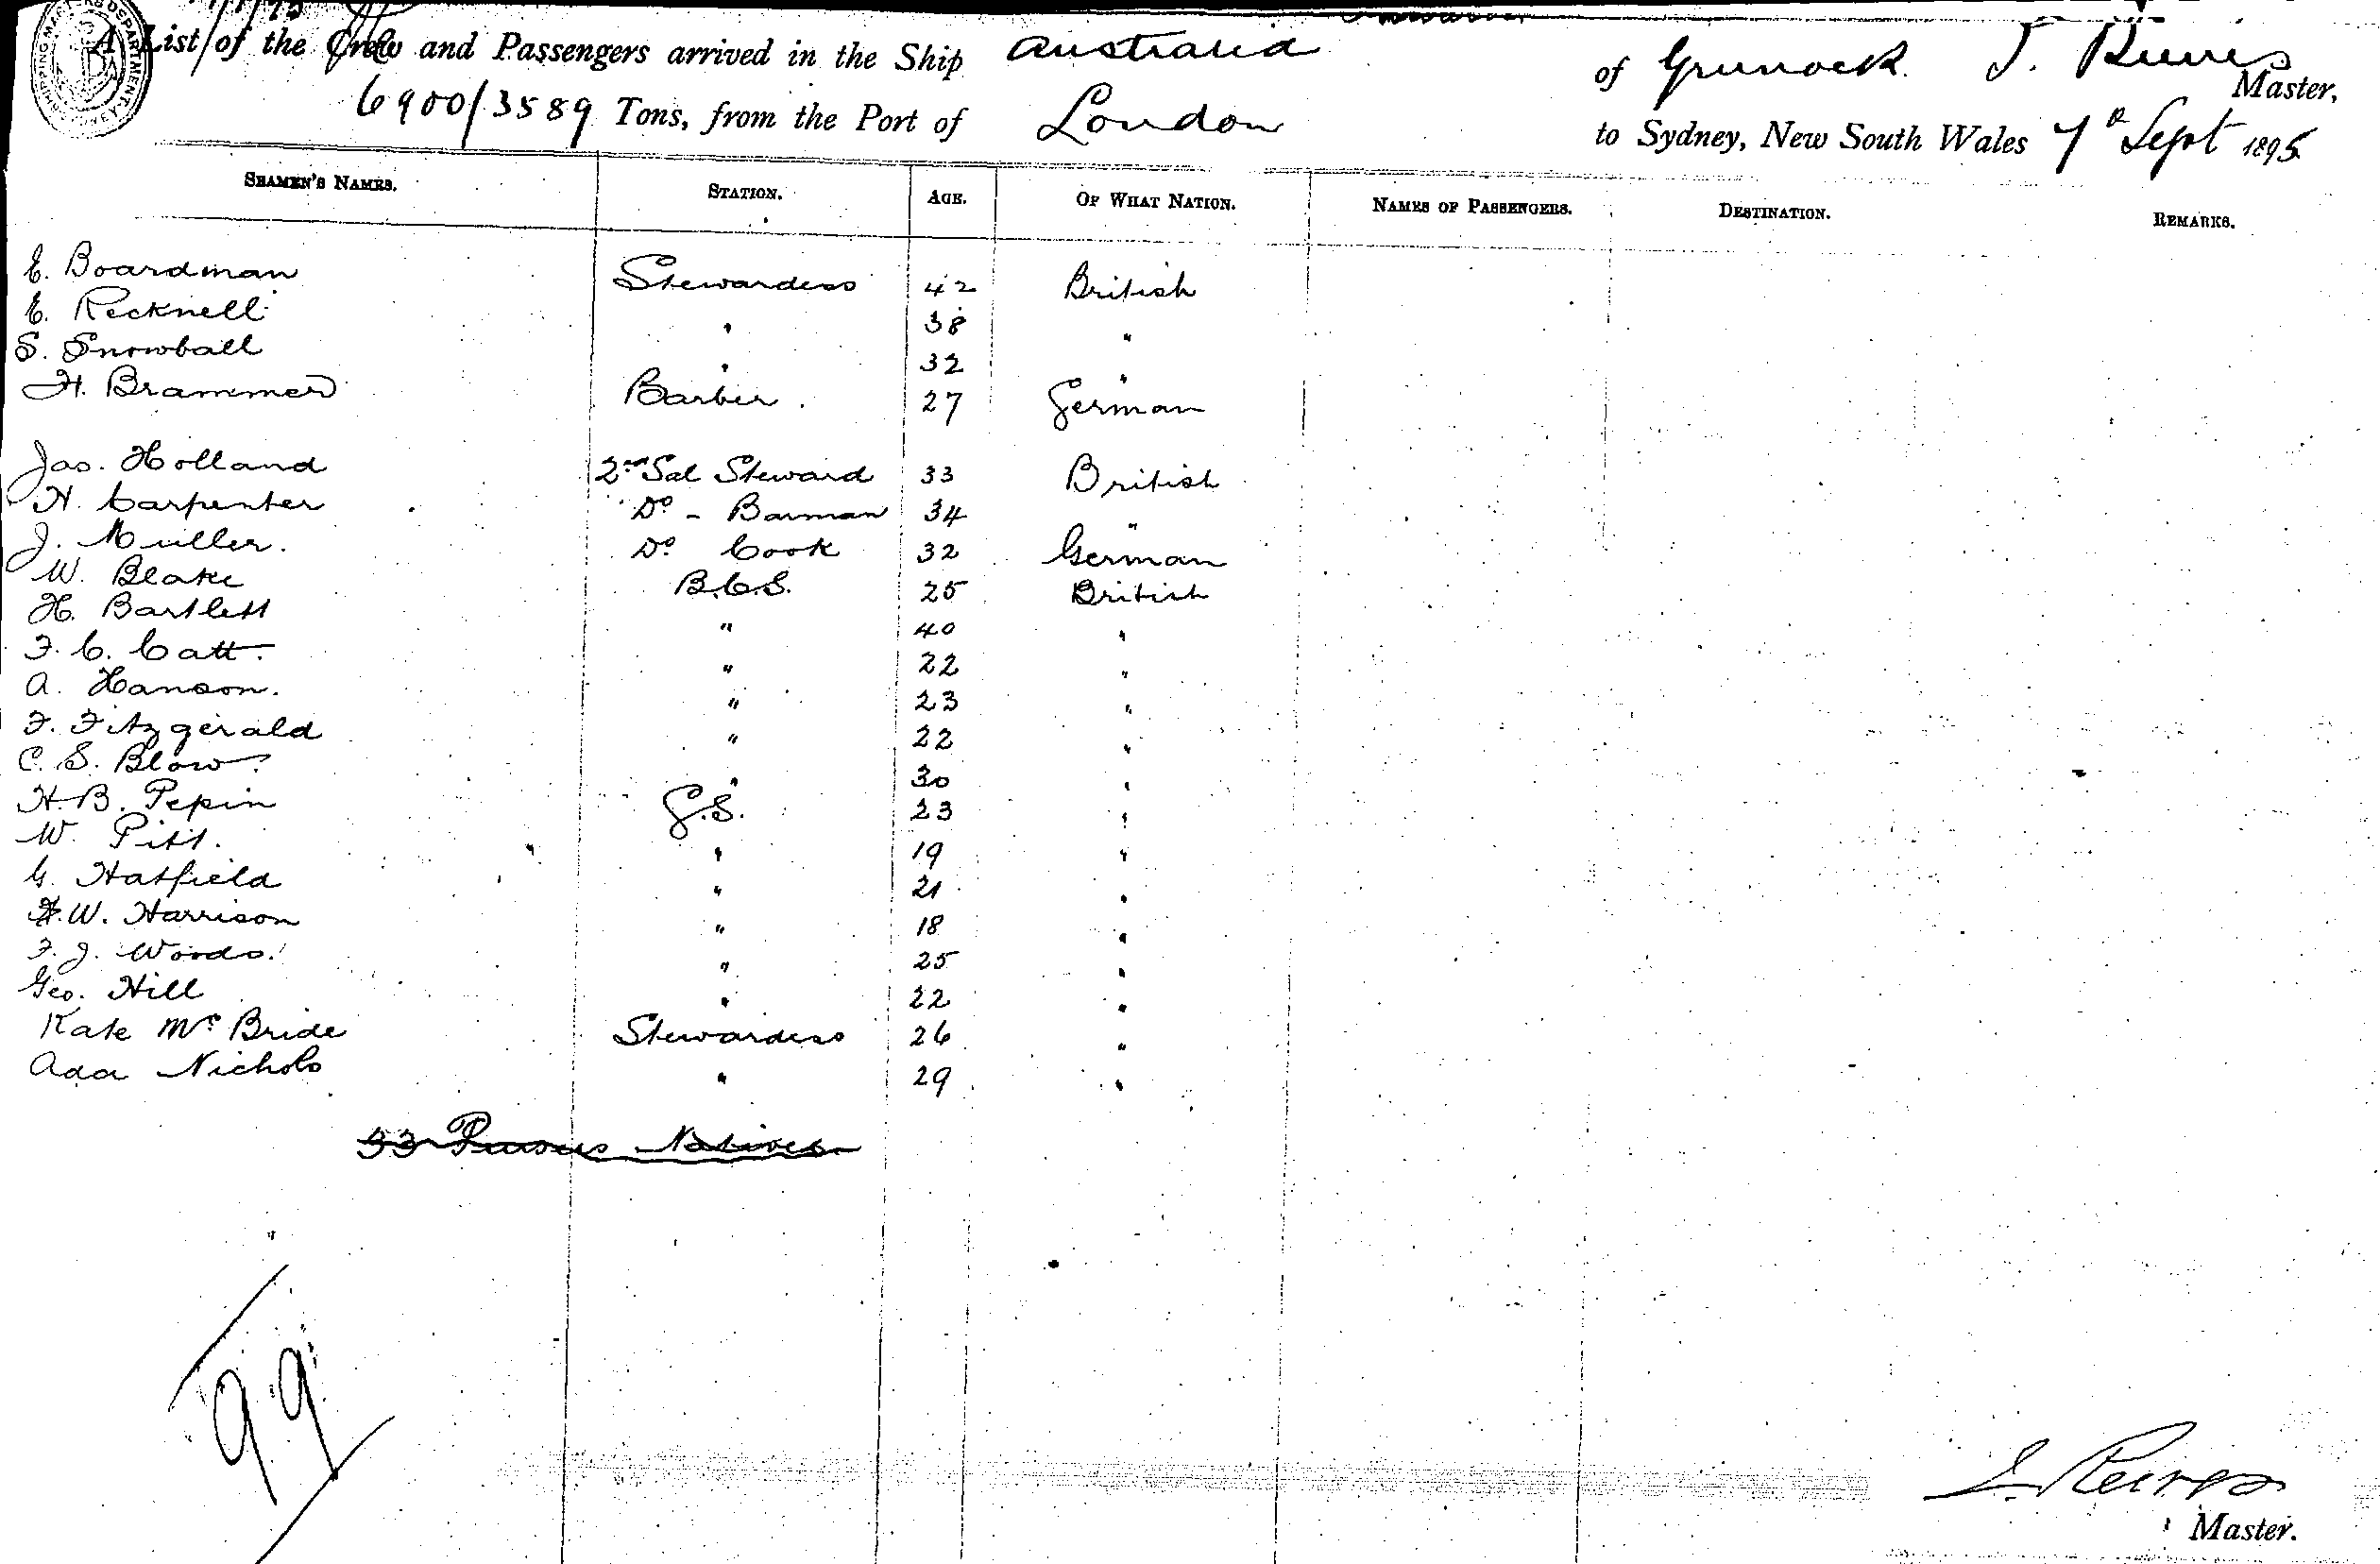 SHIPPING MASTER'S DEPARTMENT
A List of the Crew and Passengers arrived in the Ship Australia of Greenock. J. Reeves Master,
6900/3589 Tons, from the Port of London to Sydney, New South Wales 7th Sept 1895
SEAMEN'S NAMES. STATION. AGE. OF WHAT NATION. NAMES OF PASSENGERS. DESTINATION. REMARKS.
E. Boardman Stewardess 42 British
E. Recknell " 38 "
S. Snowball " 32 "
H. Brammer Barber. 27 German
Jas. Holland 2nd Sal Steward 33 British
H. Carpenter Do - Barman 34 "
J. Muller. Do Cook 32 German
W. Blake B.C.S. 25 British
H. Bartlett " 40 "
F. C. Catt. " 22 "
A. Hanson. " 23 "
F. Fitzgerald " 22 "
C. S. Blow. " 30 "
H. B. Pepin G.S. 23 "
W. Pitt. " 19 "
G. Hatfield " 21 "
W. Harrison " 18 "
F. J. Woods. " 25 "
Geo. Hill " 22 "
Kate McBride Stewardess 26 "
Ada Nichols " 29 "
33 Natives
99
J. Reeves
Master.